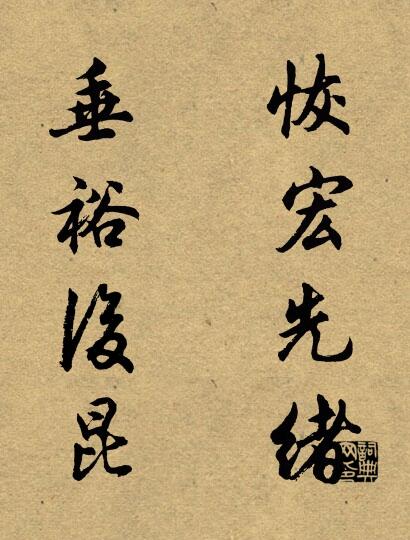 恢宏先緒
垂裕後昆